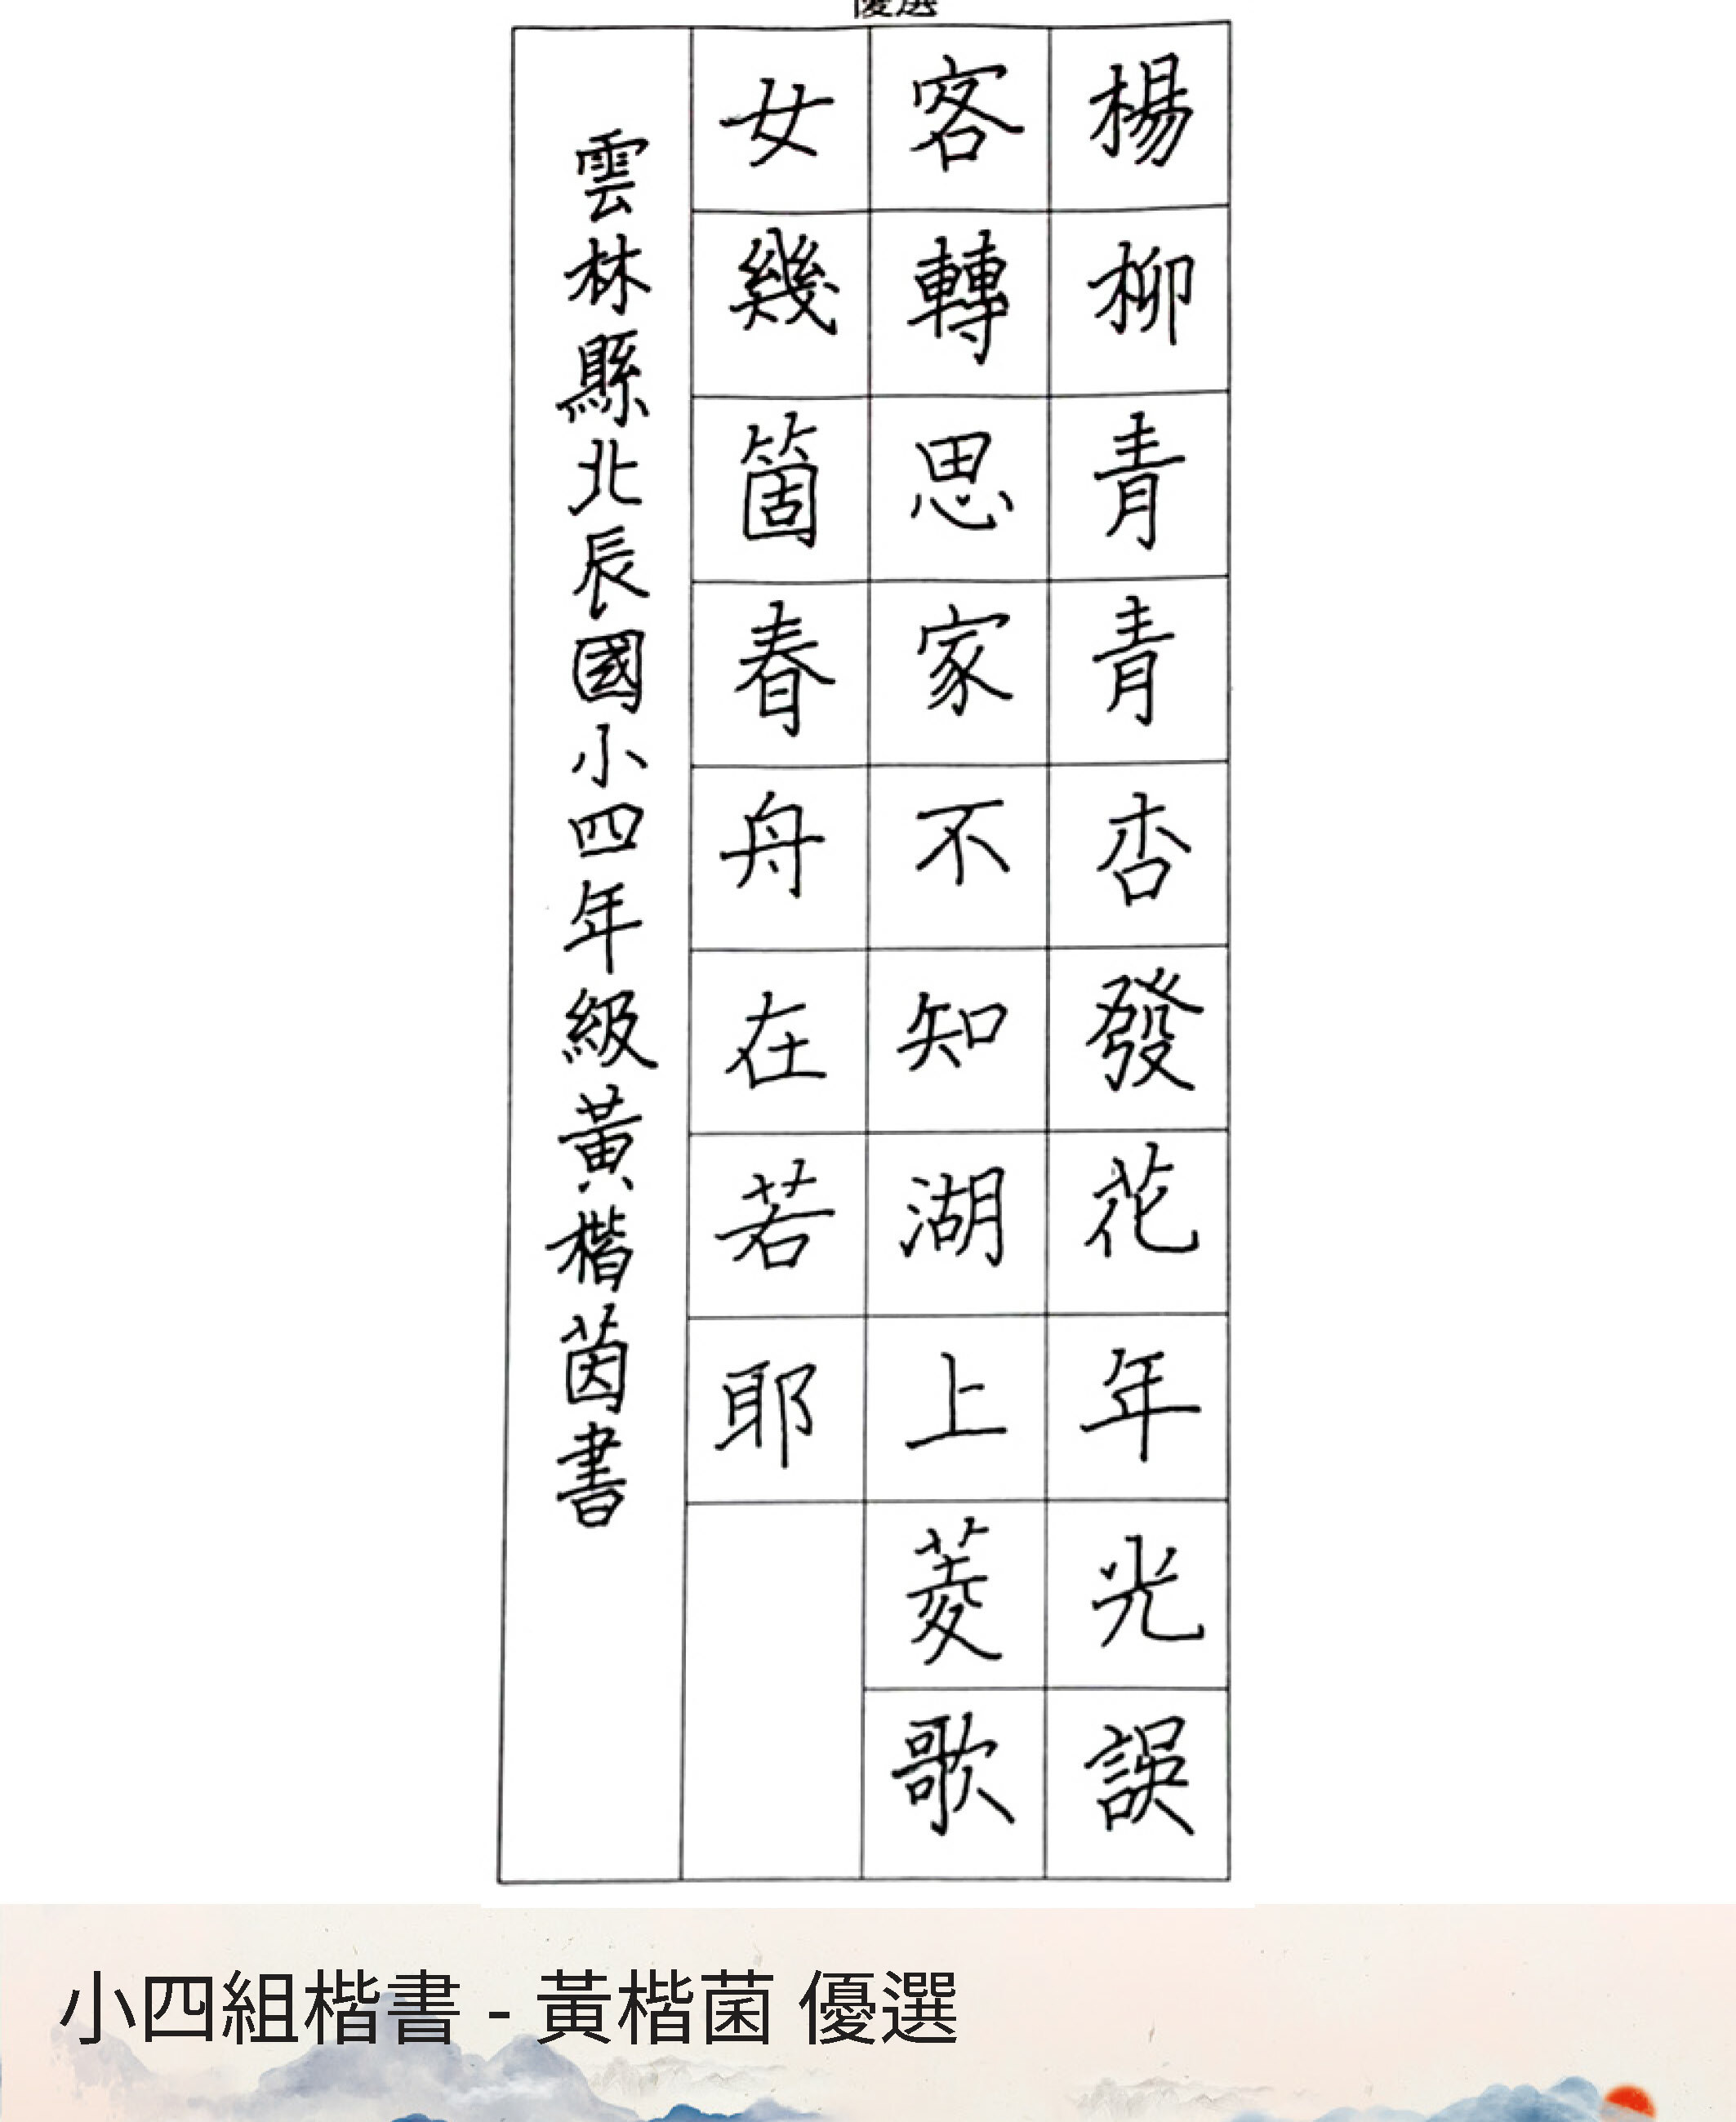 優選
楊柳青青杏發花年光誤
客轉思家不知湖上菱歌
女幾箇春舟在若耶
雲林縣北辰國小四年級黃楷茵書
小四組楷書 - 黃楷菌 優選